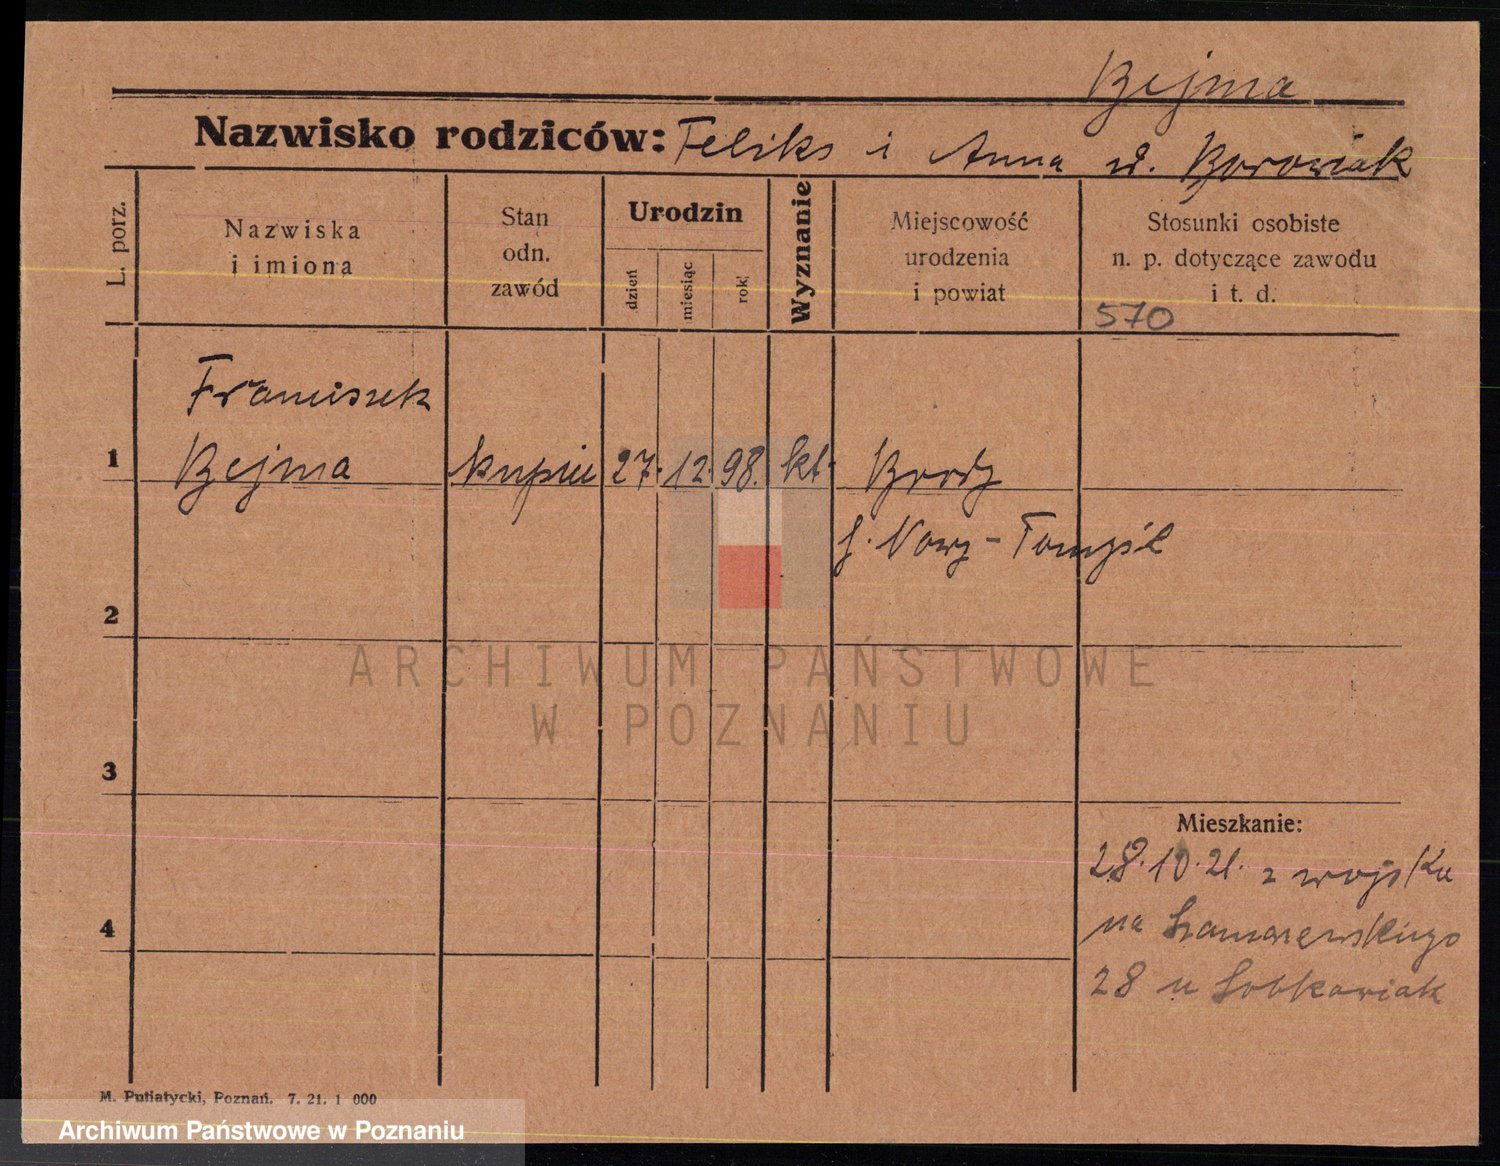 Bejma
Nazwisko rodziców: Feliks i Anna d. Borowiak
L. porz.
Nazwiska
i imiona
Stan
odn.
zawód
Urodzin
dzień
miesiąc
rok
Wyznanie
Miejscowość
urodzenia
i powiat
Stosunki osobiste
n. p. dotyczące zawodu
i t. d.
570
Franciszek
1 Bejma kupiec 27. 12. 98. kt. Brody
p. Nowy-Tomyśl
2
3
4
Mieszkanie:
28.10.21. z wojska
na Szamarzewskiego
28 u
M. Putiatycki, Poznań. 7. 21. 1 000
ARCHIWUM PAŃSTWOWE
W POZNANIU
Archiwum Państwowe w Poznaniu